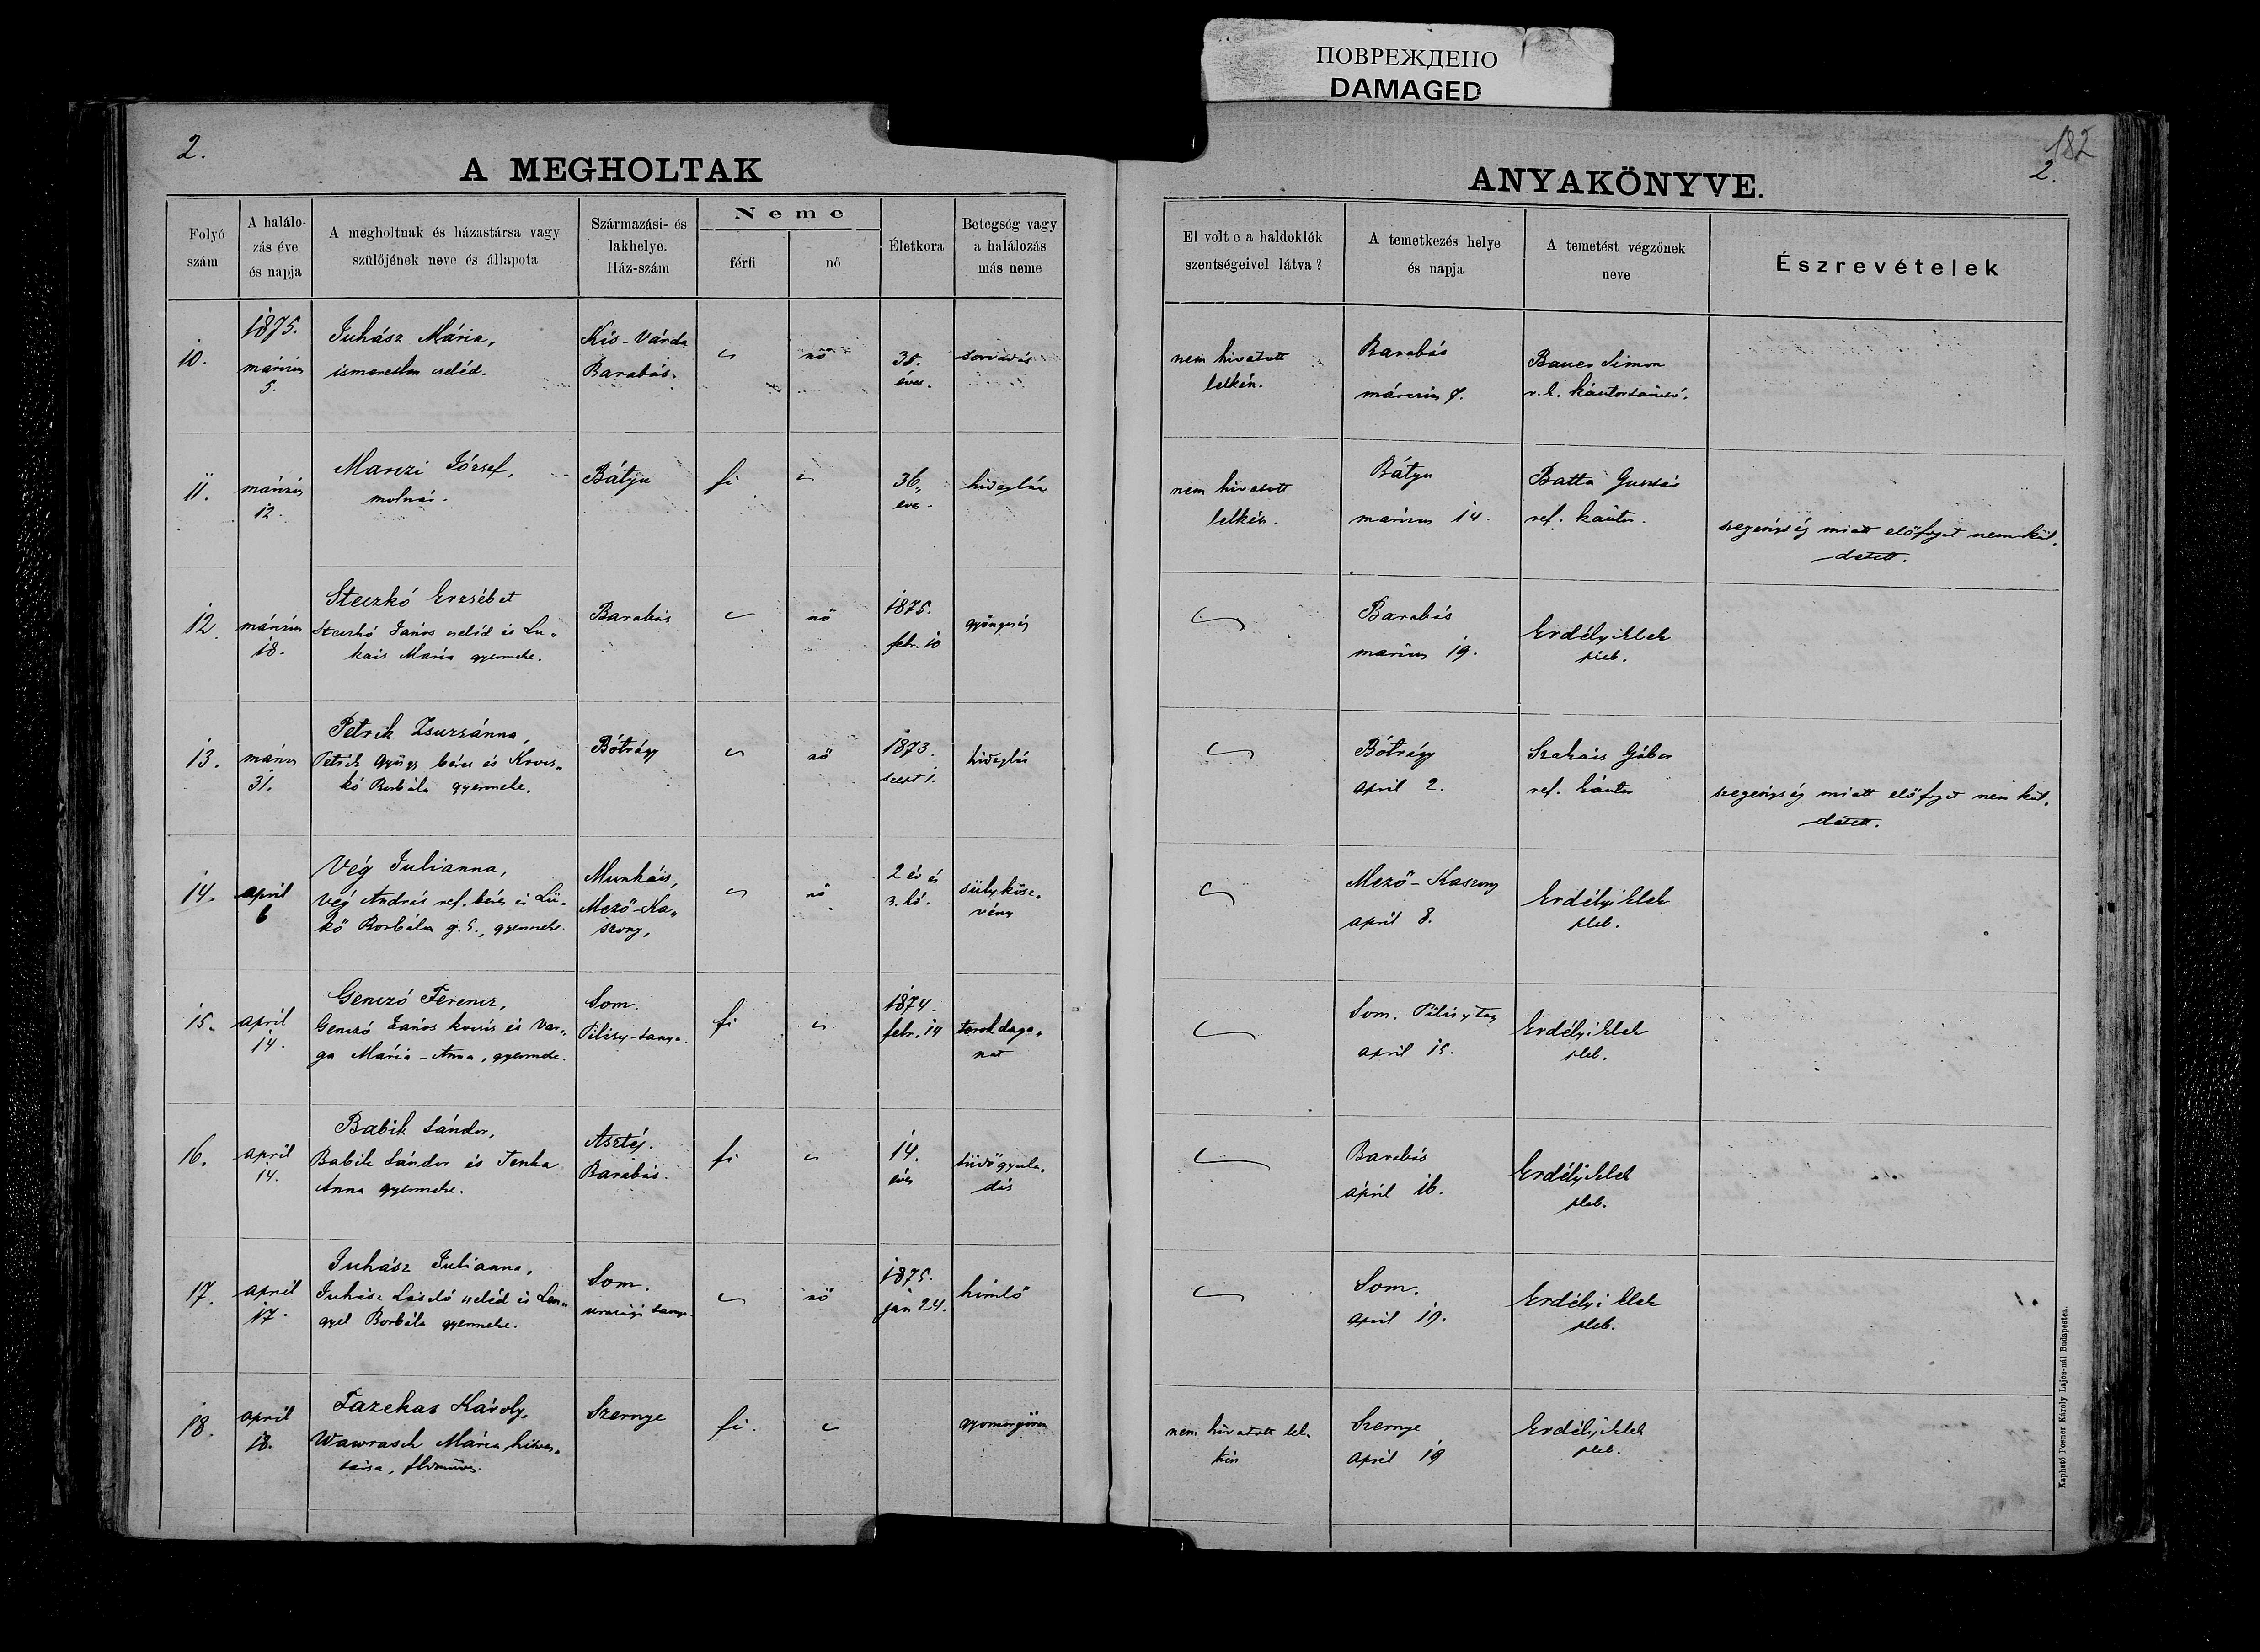 ПОВРЕЖДЕНО
DAMAGED
2.
A MEGHOLTAK
Folyó szám
A halálo-zás éve és napja
A megholtnak és házastársa vagy szülőjének neve és állapota
Származási- és lakhelye. Ház-szám
Neme
férfi
nő
Életkora
Betegség vagy a halálozás más neme
10.
1875.
márczius
5.
Juhász Mária,
ismeretlen cseléd.
Kis-Várda
Barabás.
nő
éves.
sorvadás
11.
márczius
12.
Marczi József,
molnár.
Bátyu
fi
36
éves.
hideglás
12.
márczius
18.
Steczkó Erzsébet
Steczkó János cseléd és Lu-
kács Mária gyermeke.
Barabás
nő
1875.
febr. 10
gyöngeség
13.
márcz
31.
Petrik Zsuzsánna,
Petrik György béres és
kó Borbála gyermeke.
Bótrágy
nő
1873.
szept 1.
hideglás
14.
april
6
Vég Julianna,
Vég András ref. béres és Lü-
kö Borbála g. k., gyermeke.
Munkács,
Mező-Ka-
szony,
nő
2 év és
3. hó.
15.
april
14.
Genczó Ferencz,
Genczó János kocsis és Var-
ga Mária-Anna, gyermeke.
Som.
Pilisy-tanya.
fi
1874.
febr. 14
torokdaga-
nat
16.
april
14.
Babik Sándor,
Babik Sándor és Tenka
Anna gyermeke.
Asztéj.
Barabás.
fi
14.
éves
tüdőgyula-
dás
17.
april
17.
Juhász Julianna,
Juhász László cseléd és Len-
gyel Borbála gyermeke.
Som.
urasági tanya.
nő
1875.
jan 24.
himlő
18.
april
18.
Fazekas Károly,
Wawrasch Mária hitves-
társa, földmüves.
Szernye
fi.
gyomorgörcs
182
2.
ANYAKÖNYVE.
El volt e a haldoklók szentségeivel látva?
A temetkezés helye és napja
A temetést végzőnek neve
Észrevételek
nem hivatott
lelkész.
Barabás
márczius 7.
Bauer Simon
r. k. kántortanító.
nem hivatott
lelkész.
Bátyu
márczius 14.
Batta Gusztáv
ref. kántor.
szegénység miatt előfogat nem kül-
detett.
Barabás
márczius 19.
Erdélyi Elek
pleb.
Bótrágy
april 2.
Szakács Gábor
ref. kántor
szegénység miatt előfogat nem kül-
detett.
Mező-Kaszony
april 8.
Erdélyi Elek
pleb.
Som. Pilisy tag
april 15.
Erdélyi Elek
pleb.
Barabás
április 16.
Erdélyi Elek
pleb.
Som.
april 19.
Erdélyi Elek
pleb.
nem hivatott lel-
kész
Szernye
april 19
Erdélyi Elek
pleb.
Kapható Posner Károly Lajos-nál Budapesten.